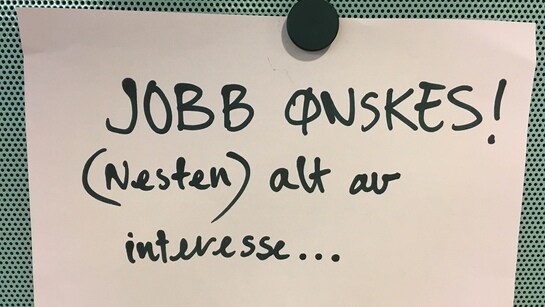 JOBB ØNSKES!
(Nesten) alt av
interesse...